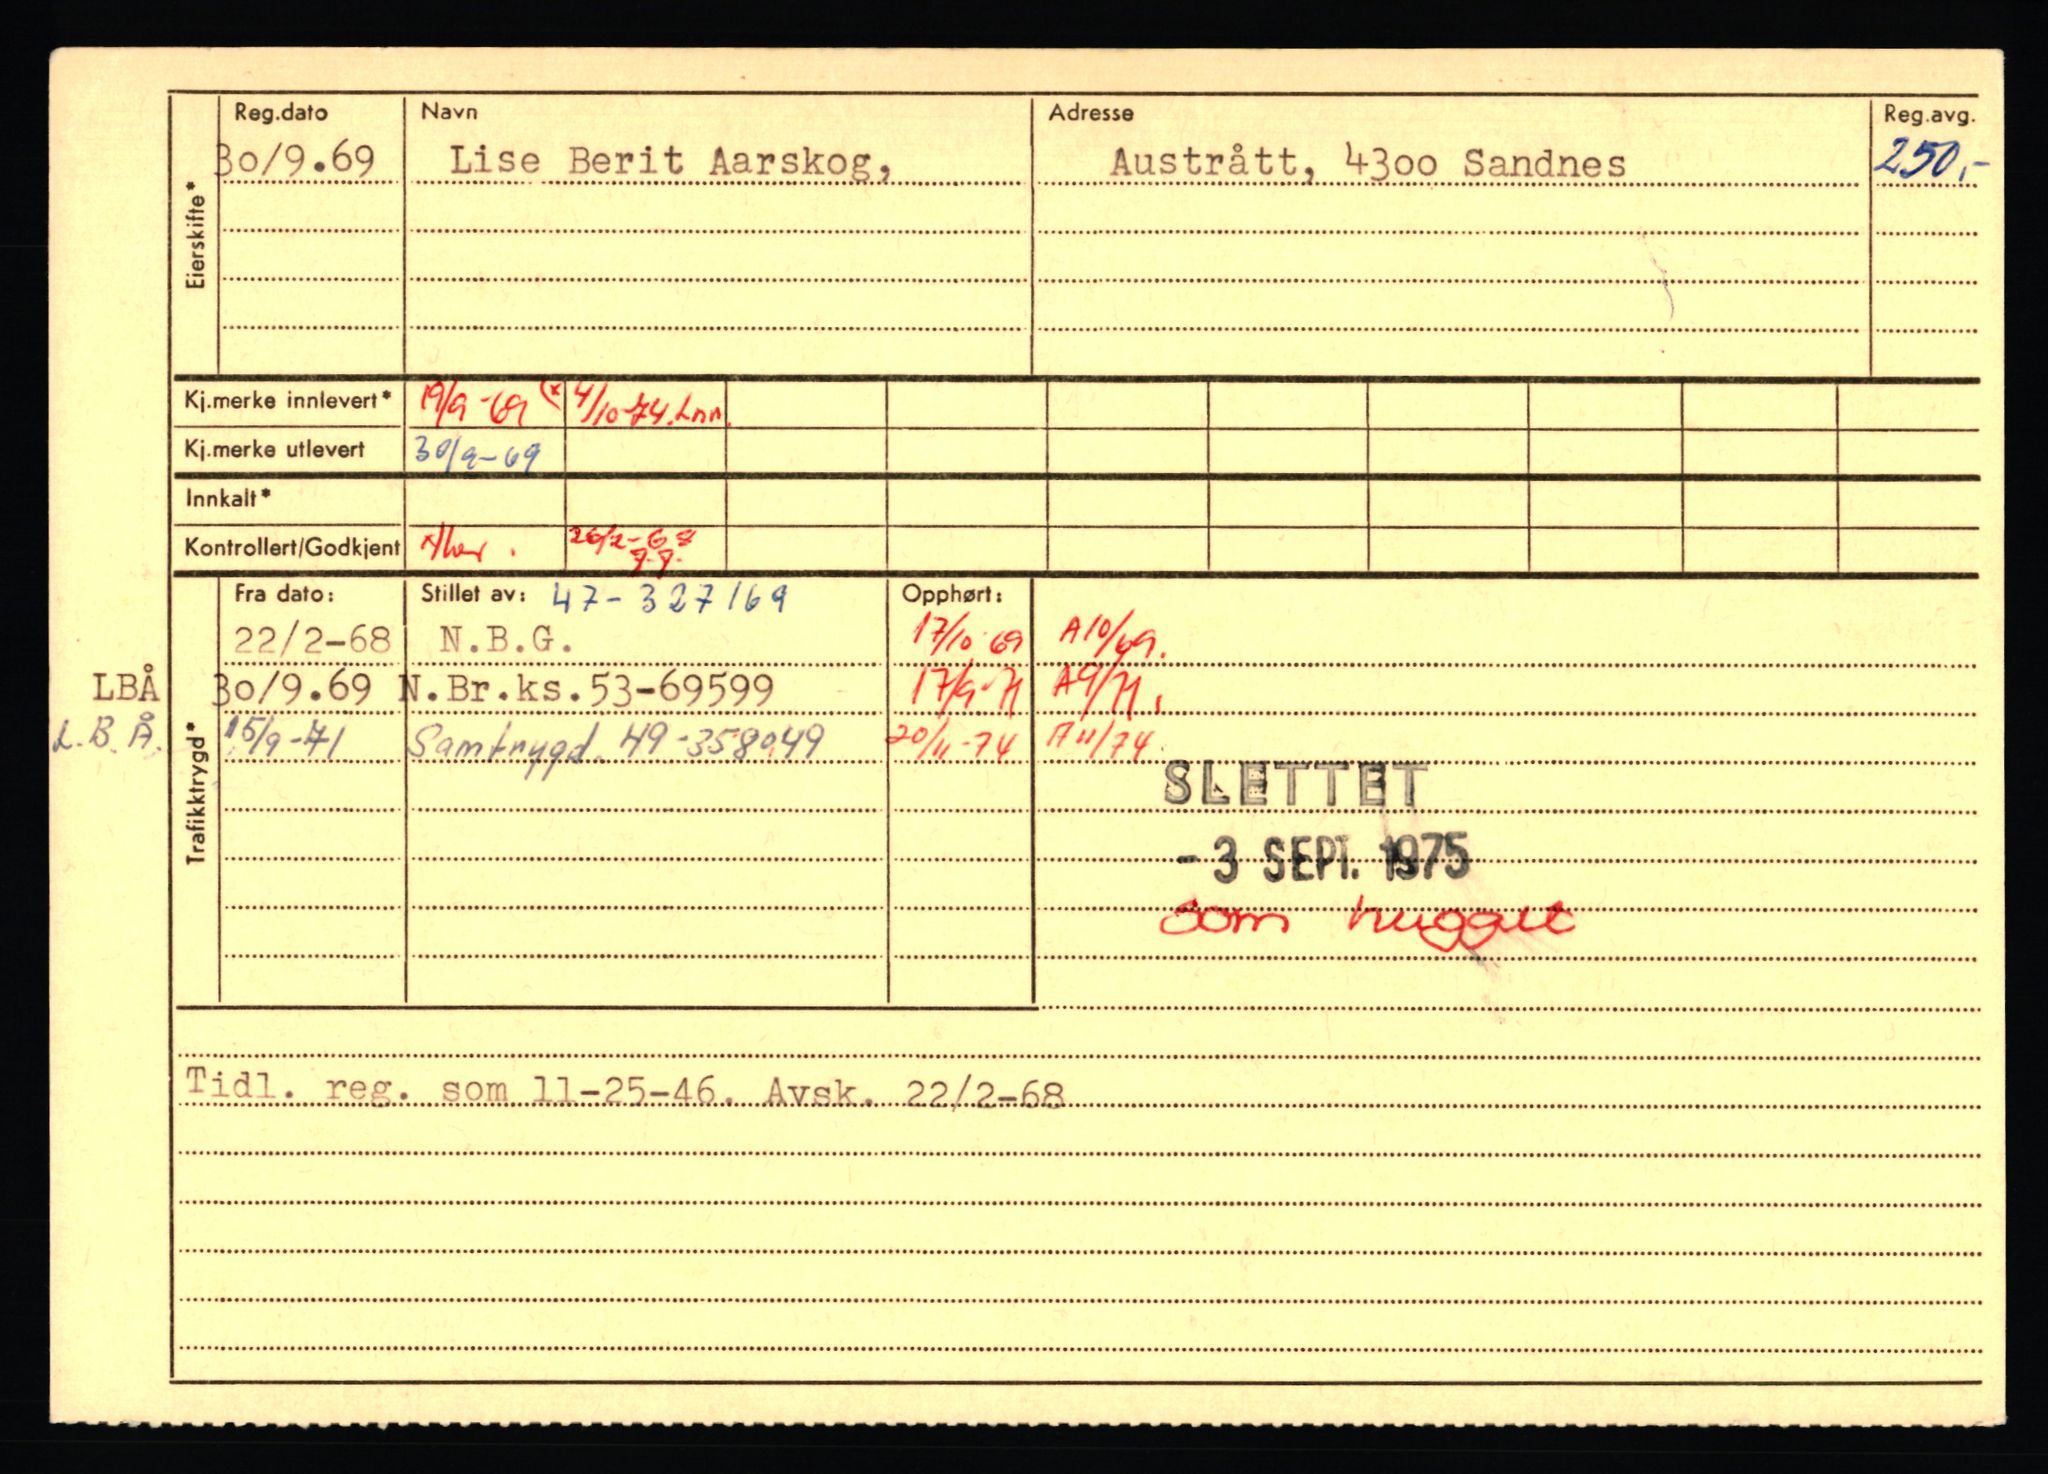 Reg.dato Navn Adresse Reg.avg.
30/9.69 Lise Berit Aarskog, Austrått, 4300 Sandnes 250,-
Eierskifte*
Kj.merke innlevert* 19/9-69 (x 4/10-74. Lnn.
Kj.merke utlevert 30/9-69
Innkalt*
Kontrollert/Godkjent 26/2-68
Fra dato: Stillet av: 47-327169 Opphørt:
22/2-68 N.B.G. 17/10 69 A10/69.
LBÅ 30/9.69 N.Br.ks.53-69599 17/9-71 A9/71.
L.B.Å. 15/9-71 Samtrygd. 49-358049 20/11-74 A11/74
Trafikktrygd*
SLETTET
- 3 SEPT. 1975
som hugget
Tidl. reg. som 11-25-46. Avsk. 22/2-68